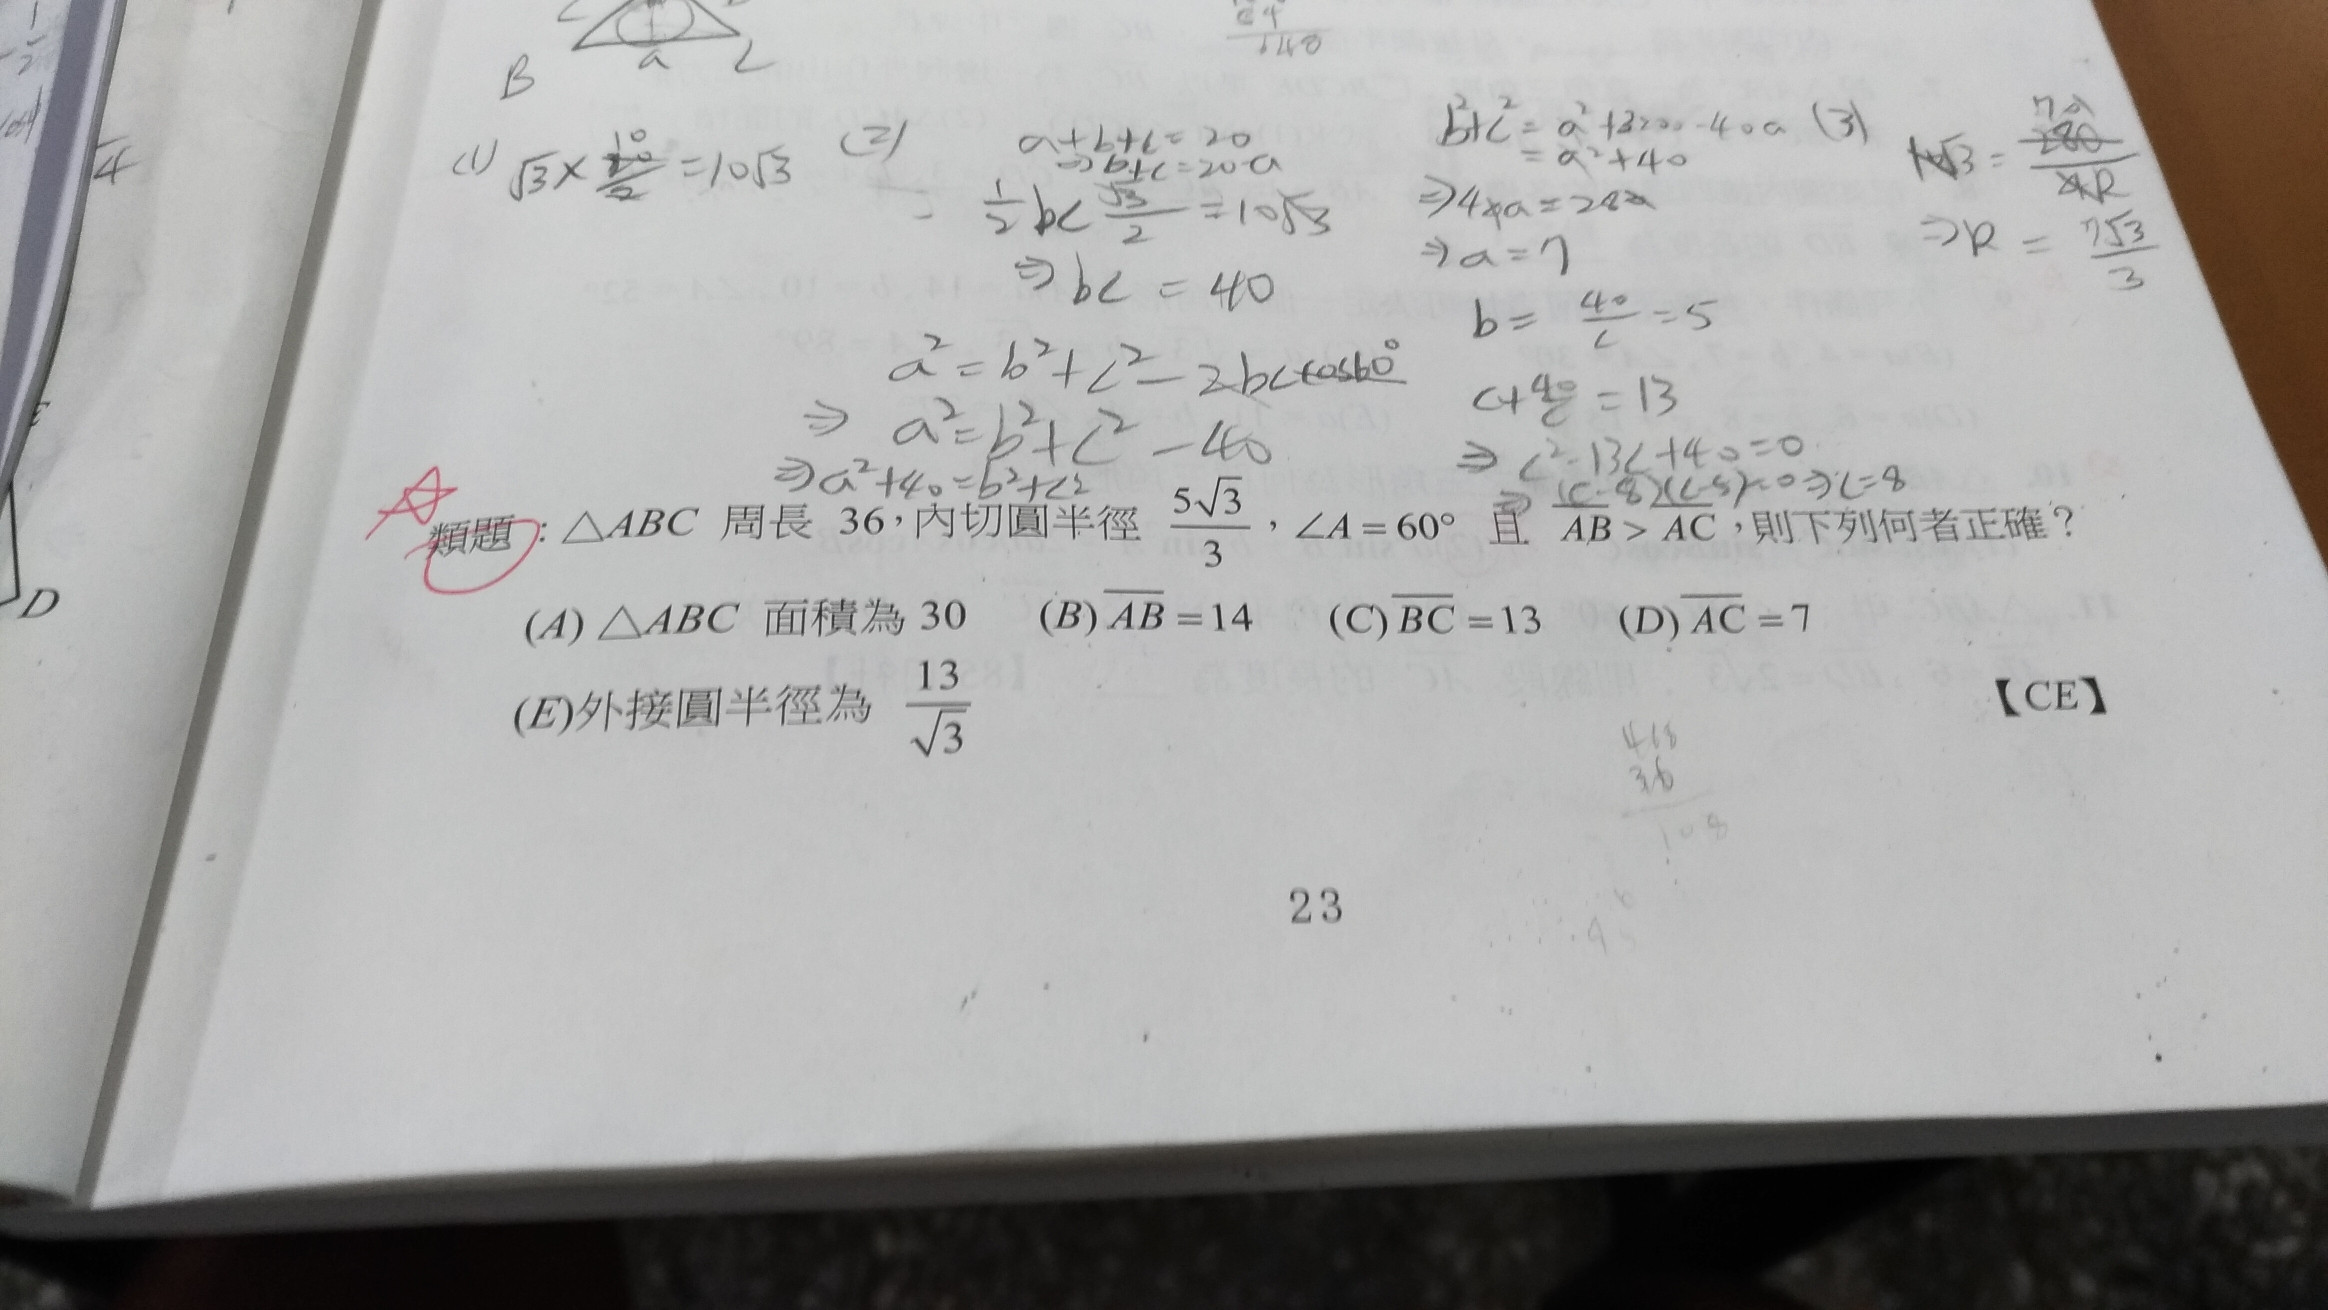 B
a
C
64
140
(1) √3 × 20/2 = 10√3
(2) a+b+c=20
⇒ b+c=20-a
1/2 bc √3/2 = 10√3
⇒ bc = 40
a² = b² + c² - 2bc cos60°
⇒ a² = b² + c² - 40
⇒ a² + 40 = b² + c²
= a² + 40
⇒ a = 7
b = 40/c = 5
c + 40/c = 13
⇒ c² - 13c + 40 = 0
⇒ (c-8)(c-5)=0 ⇒ c=8
(3)
⇒ R = 7√3/3
4
D
類題：△ABC 周長 36，內切圓半徑 5√3/3，∠A=60° 且 AB > AC，則下列何者正確？
(A) △ABC 面積為 30 (B) AB =14 (C) BC =13 (D) AC =7
(E)外接圓半徑為 13/√3 【CE】
36
108
23